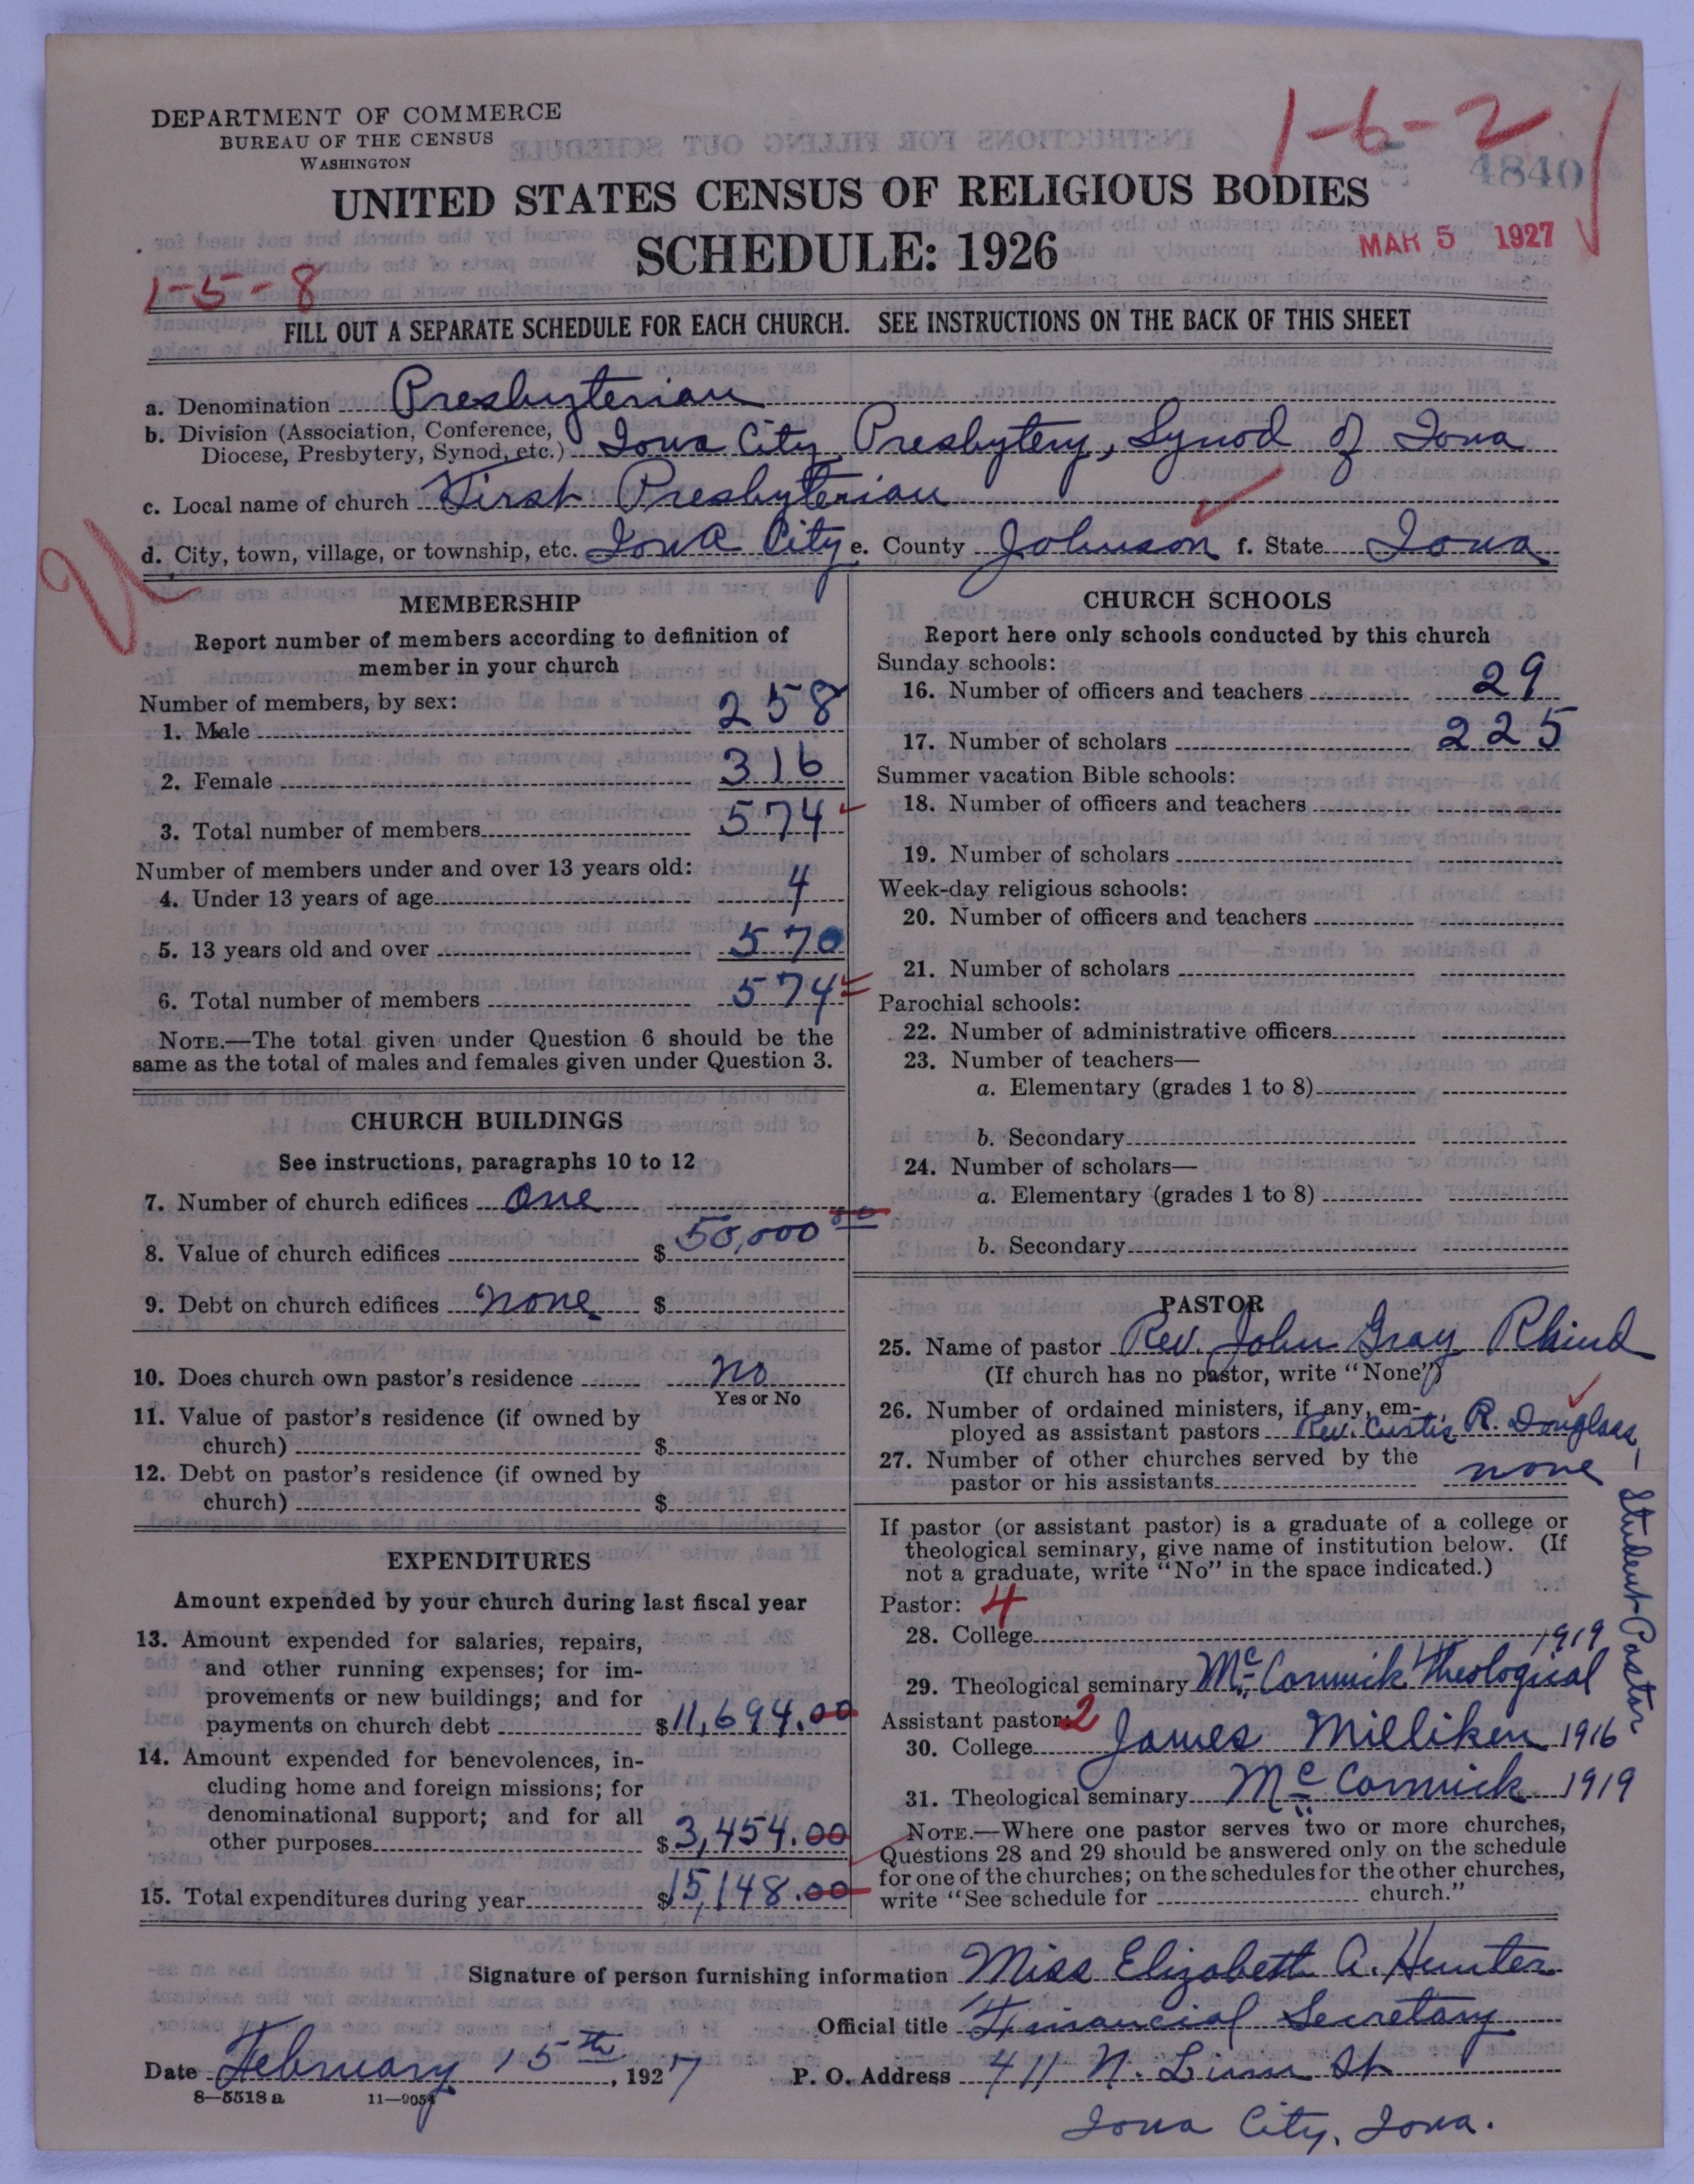 DEPARTMENT OF COMMERCE
BUREAU OF THE CENSUS
WASHINGTON
1-6-2
4840
UNITED STATES CENSUS OF RELIGIOUS BODIES
SCHEDULE: 1926
MAR 5 1927
1-5-8
FILL OUT A SEPARATE SCHEDULE FOR EACH CHURCH. SEE INSTRUCTIONS ON THE BACK OF THIS SHEET
a. Denomination Presbyterian
b. Division (Association, Conference,
Diocese, Presbytery, Synod, etc.) Iowa City Presbytery, Synod of Iowa
c. Local name of church First Presbyterian
d. City, town, village, or township, etc. Iowa City e. County Johnson f. State Iowa
MEMBERSHIP
Report number of members according to definition of
member in your church
Number of members, by sex:
1. Male 258
2. Female 316
3. Total number of members 574
Number of members under and over 13 years old:
4. Under 13 years of age 4
5. 13 years old and over 570
6. Total number of members 574
NOTE.—The total given under Question 6 should be the
same as the total of males and females given under Question 3.
CHURCH BUILDINGS
See instructions, paragraphs 10 to 12
7. Number of church edifices One
8. Value of church edifices $ 50,000 00
9. Debt on church edifices none $
10. Does church own pastor's residence no
Yes or No
11. Value of pastor's residence (if owned by
church) $
12. Debt on pastor's residence (if owned by
church) $
EXPENDITURES
Amount expended by your church during last fiscal year
13. Amount expended for salaries, repairs,
and other running expenses; for im-
provements or new buildings; and for
payments on church debt $ 11,694.00
14. Amount expended for benevolences, in-
cluding home and foreign missions; for
denominational support; and for all
other purposes $ 3,454.00
15. Total expenditures during year $ 15,148.00
CHURCH SCHOOLS
Report here only schools conducted by this church
Sunday schools:
16. Number of officers and teachers 29
17. Number of scholars 225
Summer vacation Bible schools:
18. Number of officers and teachers
19. Number of scholars
Week-day religious schools:
20. Number of officers and teachers
21. Number of scholars
Parochial schools:
22. Number of administrative officers
23. Number of teachers—
a. Elementary (grades 1 to 8)
b. Secondary
24. Number of scholars—
a. Elementary (grades 1 to 8)
b. Secondary
PASTOR
25. Name of pastor Rev. John Gray Rhind
(If church has no pastor, write "None")
26. Number of ordained ministers, if any, em-
ployed as assistant pastors Rev. Curtis R. Douglass —
Student-Pastor
27. Number of other churches served by the
pastor or his assistants none
If pastor (or assistant pastor) is a graduate of a college or
theological seminary, give name of institution below. (If
not a graduate, write "No" in the space indicated.)
Pastor: 4
28. College
29. Theological seminary McCormick Theological 1919
Assistant pastor: 2
30. College James Milliken 1916
31. Theological seminary McCormick 1919
NOTE.—Where one pastor serves two or more churches,
Questions 28 and 29 should be answered only on the schedule
for one of the churches; on the schedules for the other churches,
write "See schedule for church."
Signature of person furnishing information Miss Elizabeth A. Hunter
Official title Financial Secretary
Date February 15th, 1927 P. O. Address 411 N. Linn St
8—5518 a 11—9054
Iowa City, Iowa.